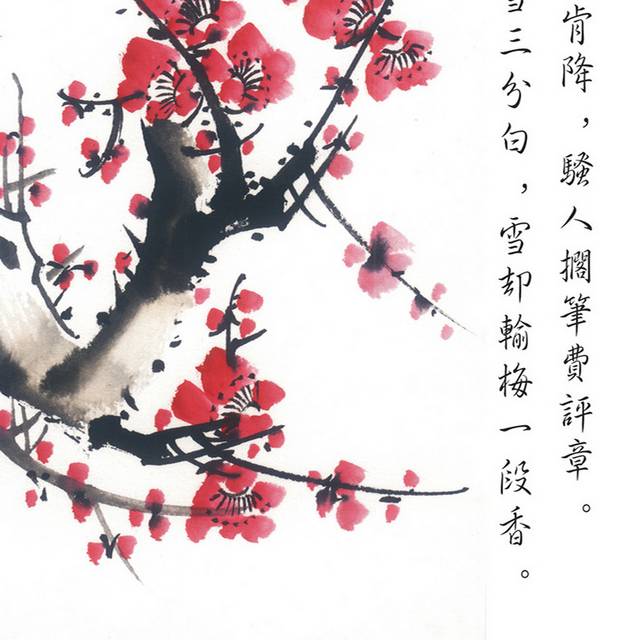 肯降，騷人擱筆費評章。
三分白，雪却輸梅一段香。